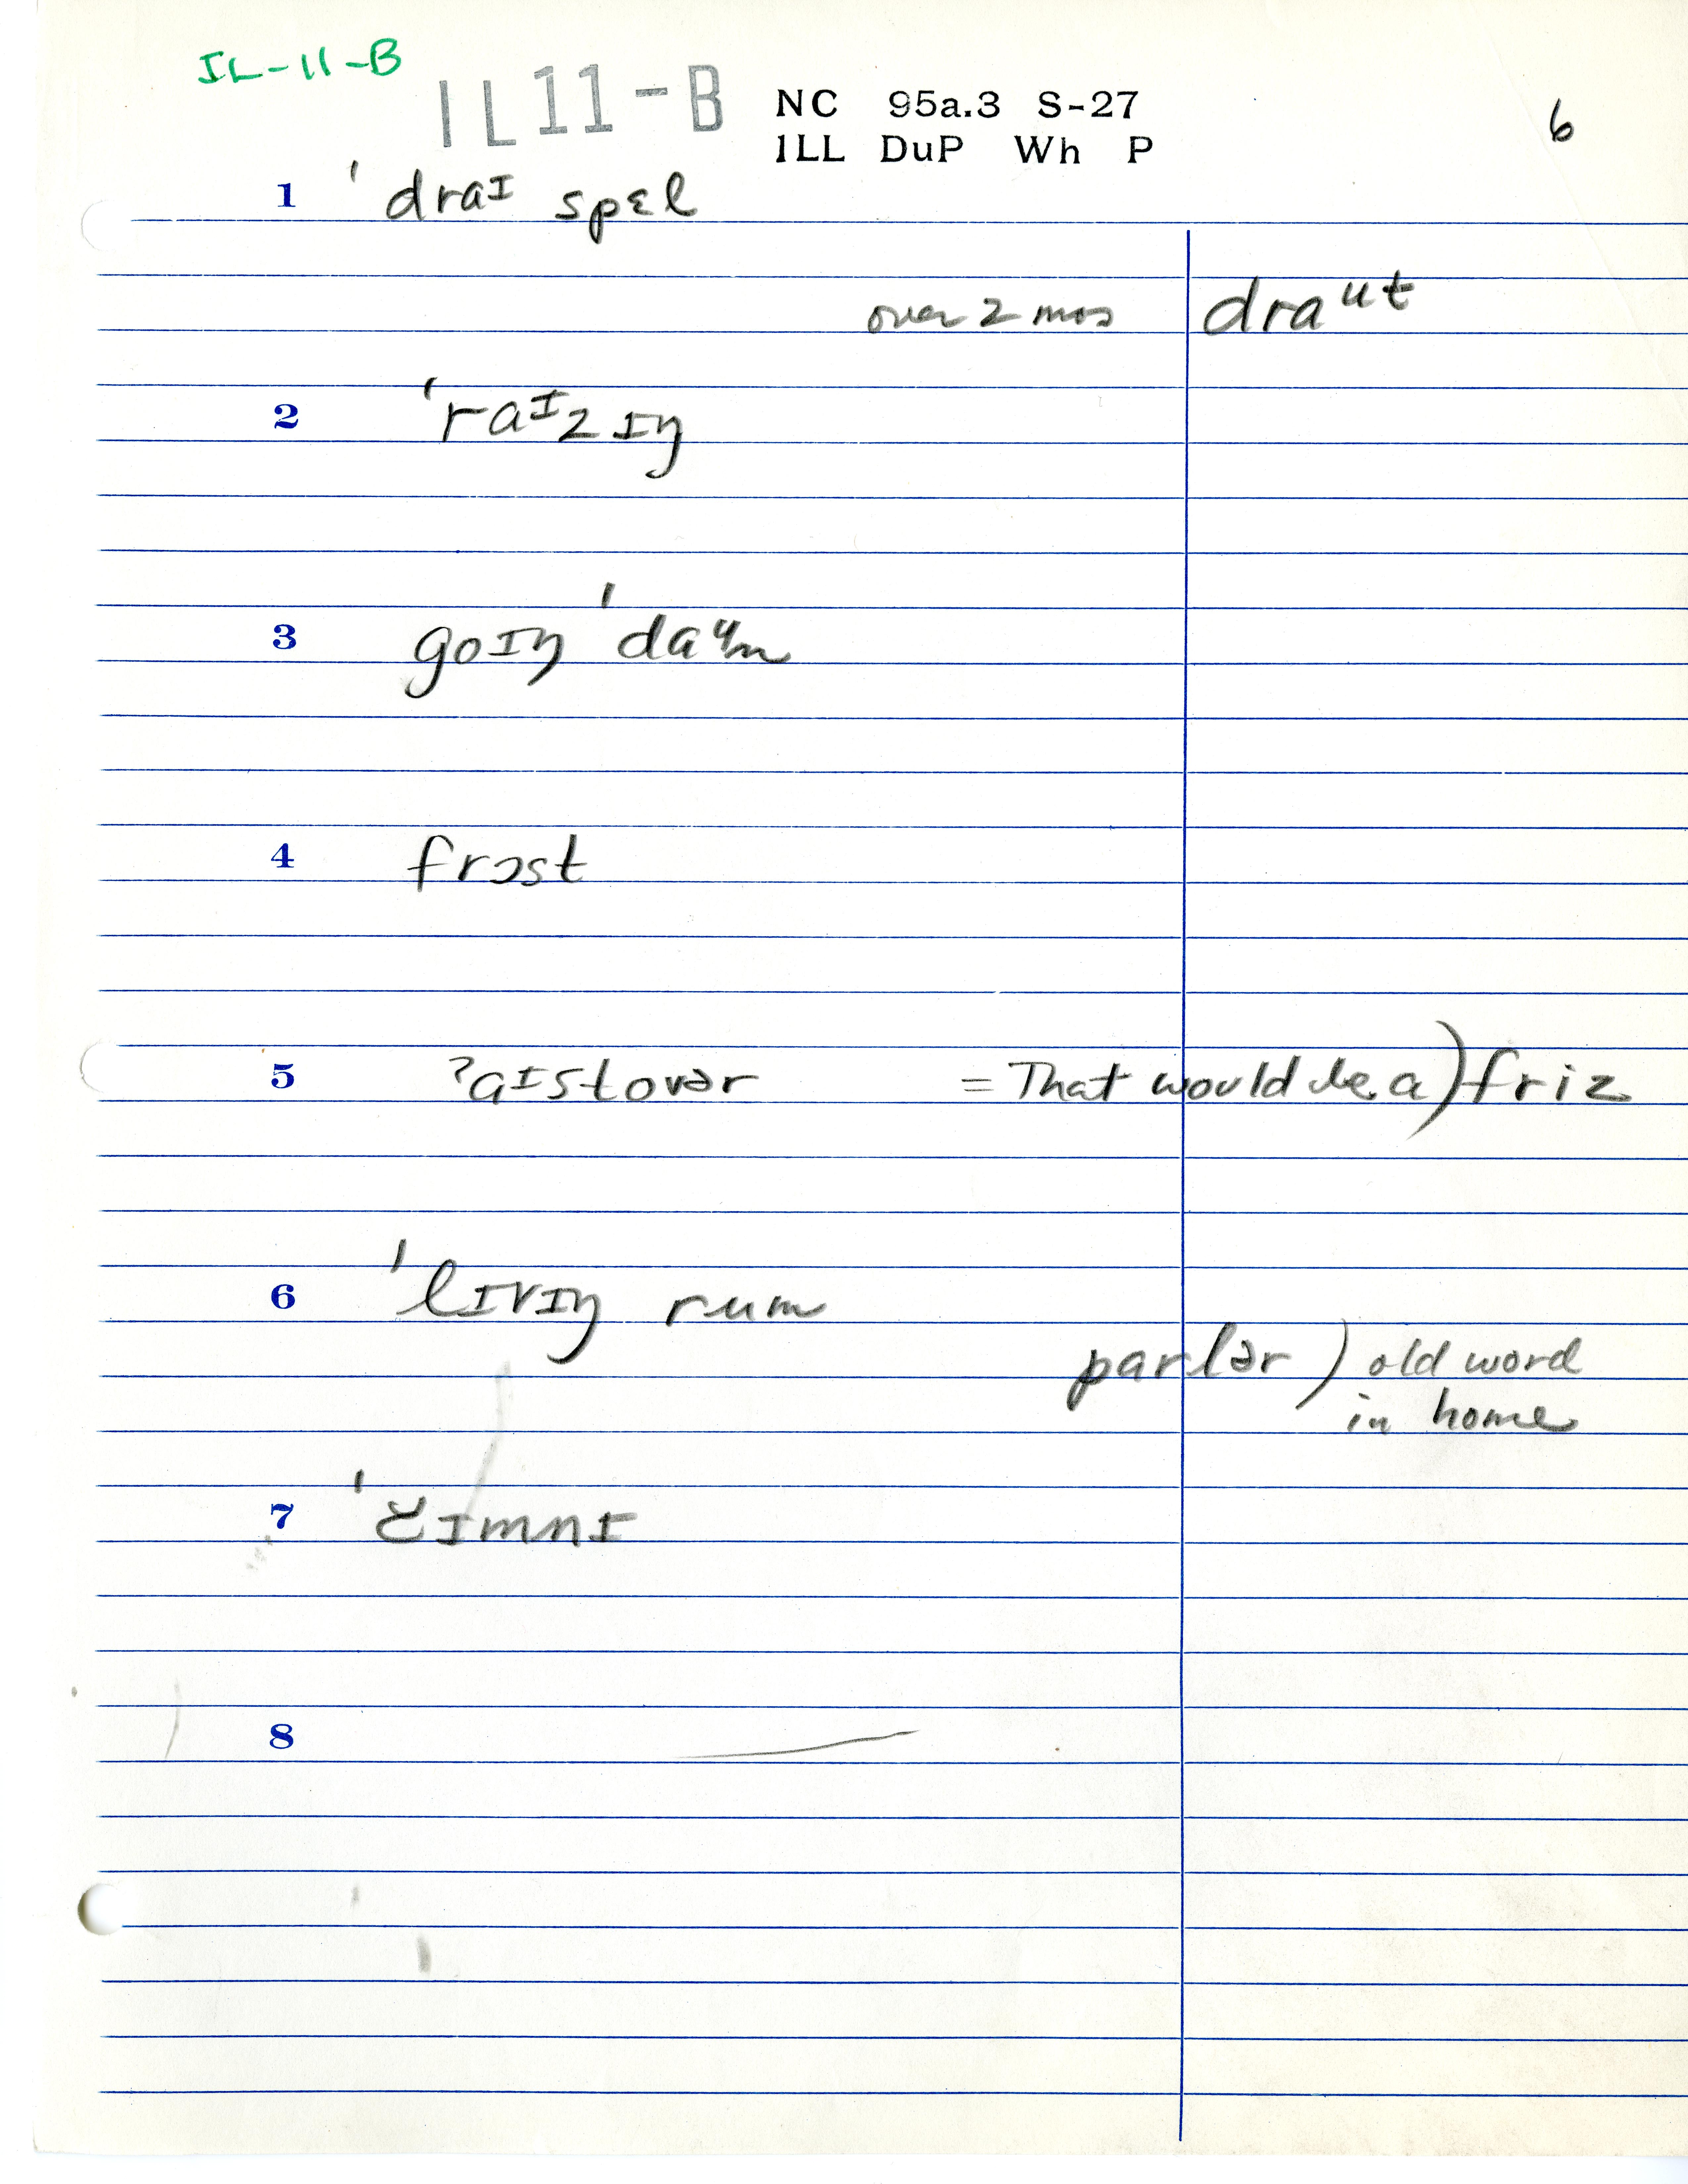 IL-11-B
IL11-B
NC 95a.3 S-27
ILL DuP Wh P
6
1 ˈdraɪ spɛl
over 2 mos draᵘt
2 ˈraᶦzɪŋ
3 goɪŋ ˈdaᵘn
4 frɔst
5 ?aɪstovər = That would be a) friz
6 ˈlɪvɪŋ rum
parlər ) old word
in home
7 ˈčɪmnɪ
8 —